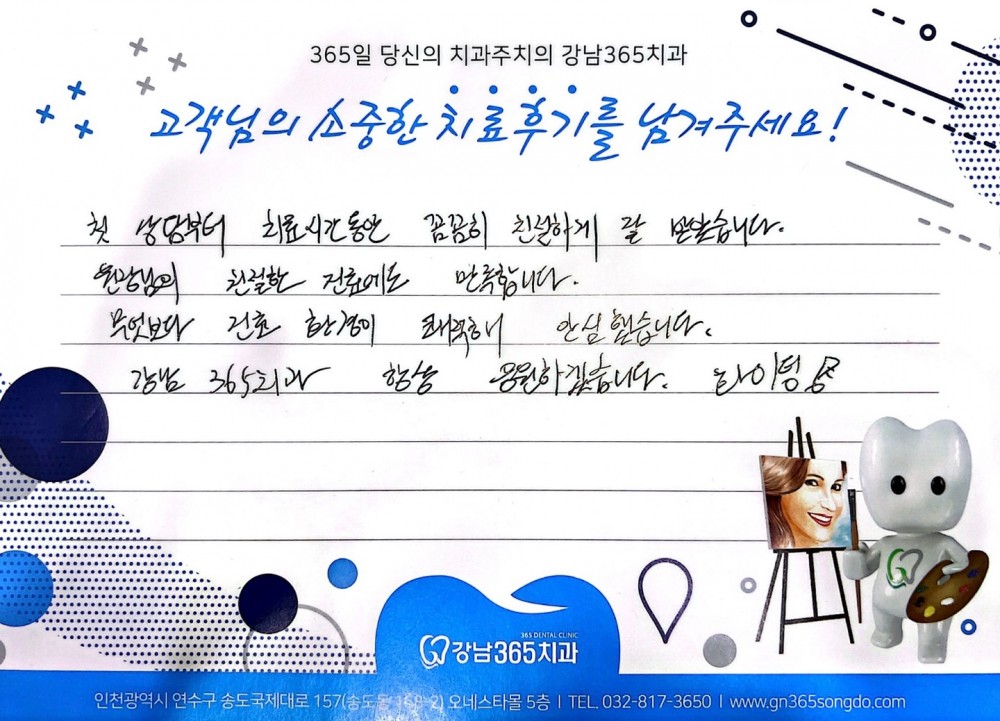 365일 당신의 치과주치의 강남365치과
고객님의 소중한 치료후기를 남겨주세요!
첫 상담부터 치료시간동안 꼼꼼히 친절하게 잘 받았습니다.
원장님의 친절한 진료에도 만족합니다.
무엇보다 진료 환경이 쾌적해서 안심했습니다.
강남 365치과 항상 응원하겠습니다. 화이팅
365 DENTAL CLINIC
강남365치과
인천광역시 연수구 송도국제대로 157(송도동 168-2) 오네스타몰 5층 | TEL. 032-817-3650 | www.gn365songdo.com